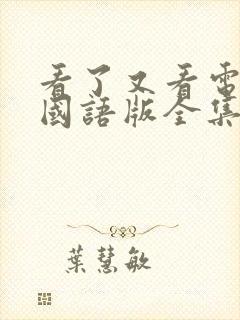 看了又看電
國語版全集
葉慧敏